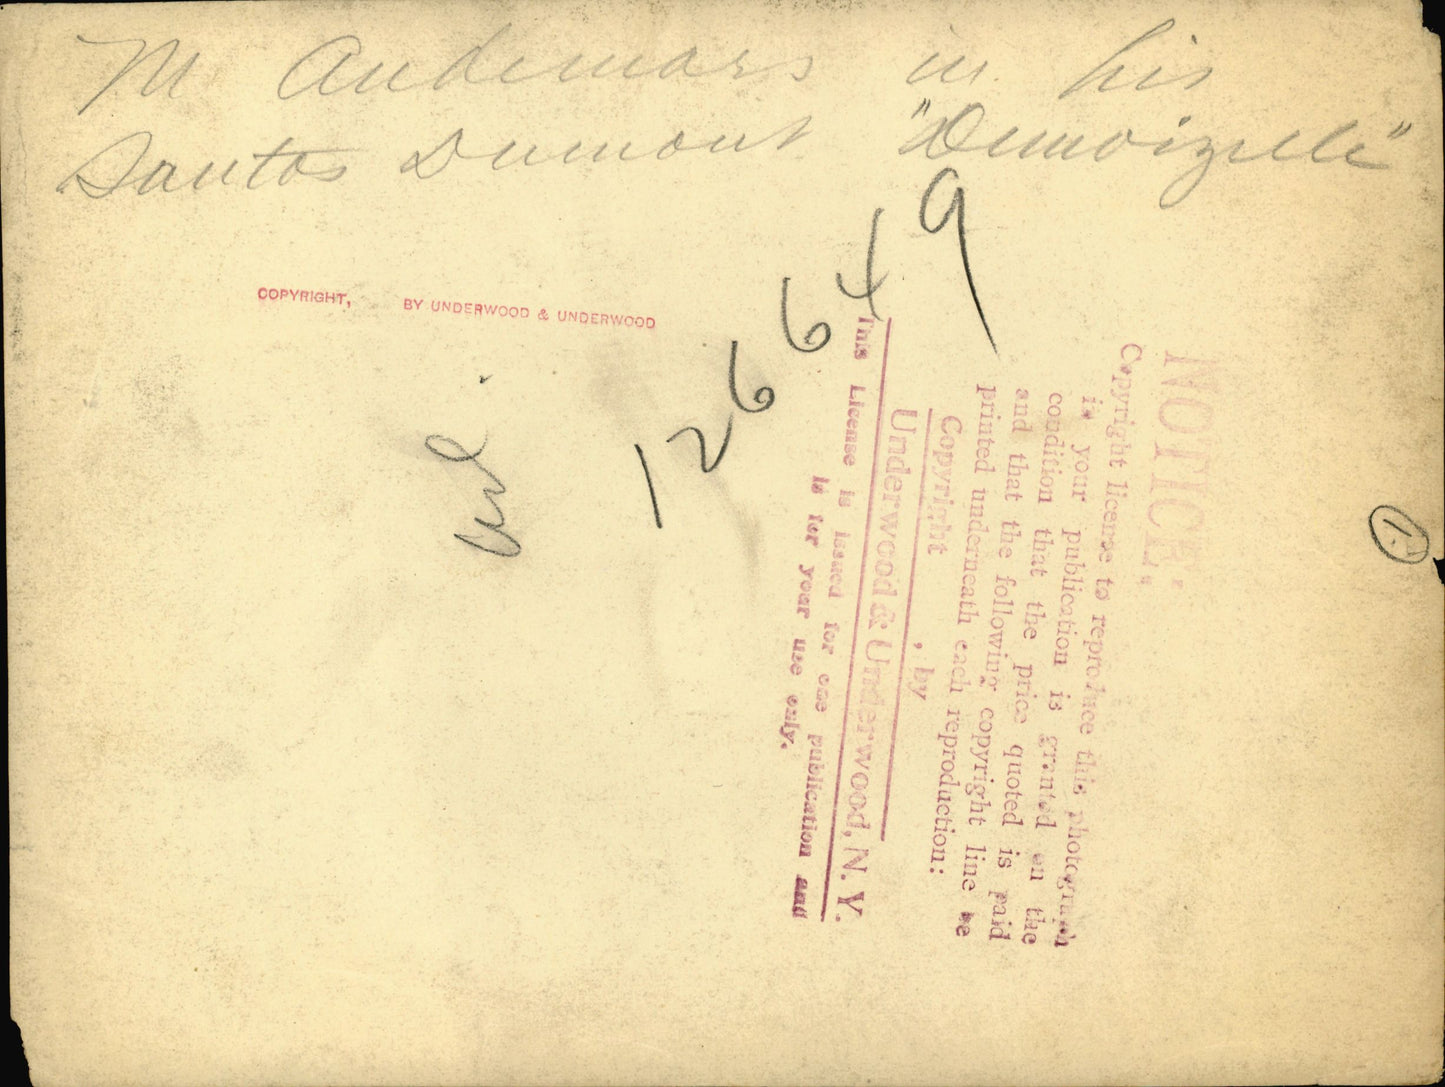 M Audemars in his
Santos Dumont "Demoizelle"
COPYRIGHT, BY UNDERWOOD & UNDERWOOD
126649
1.
NOTICE.
Copyright license to reproduce this photograph
in your publication is granted on the
condition that the price quoted is paid
and that the following copyright line be
printed underneath each reproduction:
Copyright , by
Underwood & Underwood, N. Y.
This License is issued for one publication and
is for your use only.